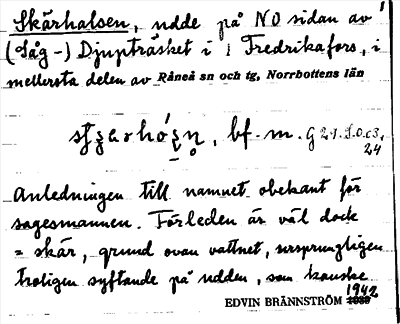 Skärhalsen, udde på NO sidan av
(Såg-) Djupträsket i Fredrikafors, i
mellersta delen av Råneå sn och tg, Norrbottens län
bf. m.
Anledningen till namnet obekant för
sagesmannen. Förleden är väl dock
= skär, grund ovan vattnet, ursprungligen
troligen syftande på udden, som kanske
1942
EDVIN BRÄNNSTRÖM